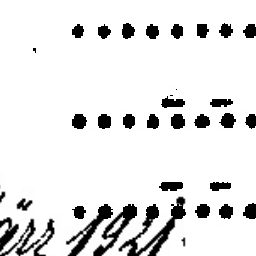 ärz 1921.